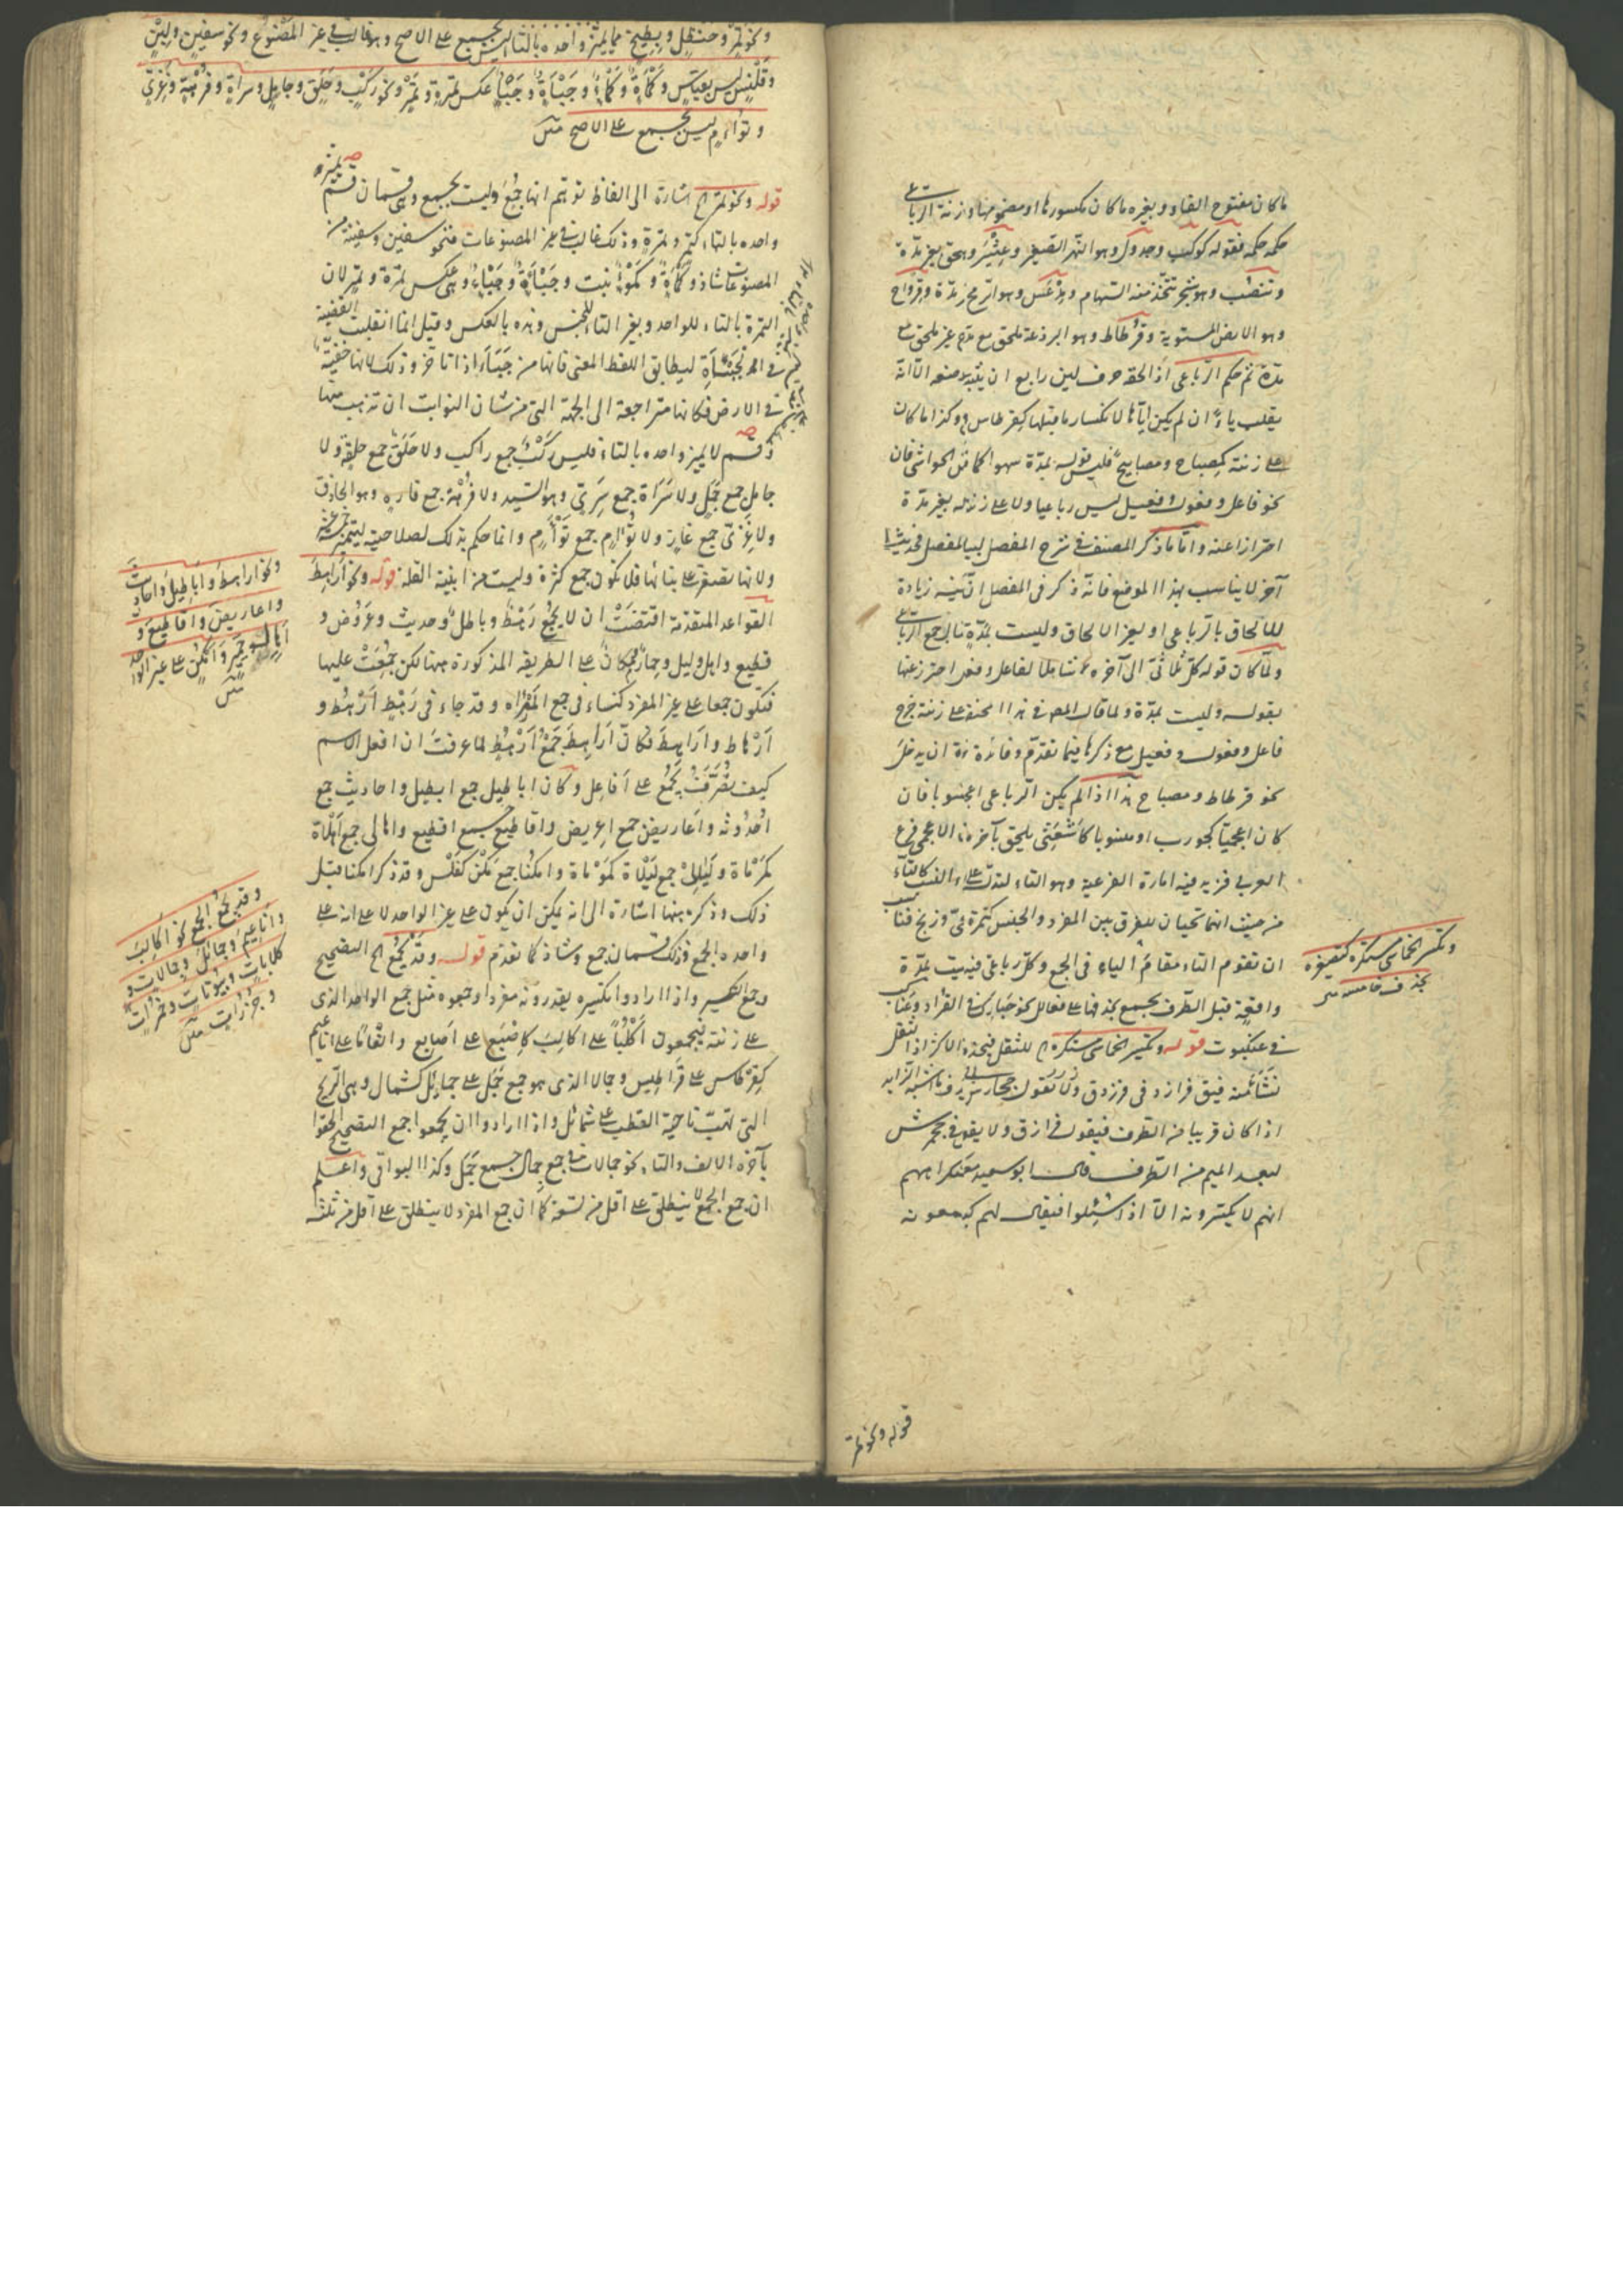 ما كان مفتوح الفاء وبغيره ما كان مكسورها او مضمومها وزنة الرباعي
حكمه حكمه فقوله كوكب وجدول وهو النهر الصغير وعثير وهق بغير مدة
وتنضب وهو شجر تتخذ منه السهام ومدعس وهو الرمح بمدة وقرواح
وهو الارض المستوية وقرطاط وهو البرذعة ملحق مع مدة غير ملحق مع
مدة ثم حكم الرباعي اذا لحقه حرف لين رابع ان يثبت الا انه
يقلب ياء ان لم يكن اياها لانكسار ما قبلها كقرطاس وكذا ما كان
على زنته كمصباح ومصابيح فليس قوله بمدة سهوا كما فى الحواشى فان
نحو فاعل وفعول وفعيل ليس رباعيا ولا على زنته بغير مدة
احترازا عنه واما ما ذكر المصنف فى شرح المفصل
آخر لا يناسب هذا الموضع فانه ذكر فى المفصل ان فيه زيادة
للالحاق بالرباعى او لغير الالحاق وليست بمدة
ولما كان قوله كل ثلاثى الى آخره شاملا لفاعل وفعول احترز عنها
بقوله وليست بمدة ولما قال المص فى هذا المختصر على زنته خرج
فاعل وفعول وفعيل مع ذكرها فيما تقدم وفائدة ان يدخل
نحو قرطاط ومصباح هذا اذا لم يكن الرباعى اعجميا او منسوبا فان
كان اعجميا كجورب او منسوبا كاشعثى يلحق بآخره الاعجمى فرع
العربى فزيد فيه امارة الفرعية وهو التاء لتدل على النسب كالتاء
من حيث انهما تجيان للفرق بين المفرد والجنس كتمرة وزنج فناسب
ان تقوم التاء مقام الياء فى الجمع وكل رباعى فيه ليست بمدة
واقعة قبل الطرف يجمع بحذفها على فعالل نحو حبارك فى القراد وعناكب
فى عنكبوت قوله وتكسير الخماسى مستكره للثقل فيحذف الاكثر اذ الثقل
نشأ منه فيق فرازد فى فرزدق وقد تقول جحارش
اذا كان قريبا من الطرف فيقول فرازق ولا يقول فى جحمرش
لبعد الميم من الطرف قال ابو سعيد
انهم لا يكسرونه الا اذا سئلوا فيقال لهم كيف تجمعونه
وتكسير الخماسى مستكره كتصغيره
بحذف خامسه متن
قوله ونحو تمر
ونحو تمر وحنظل وبطيخ مما يميز واحده بالتاء ليس بجمع على الاصح وهو غالب فى غير المصنوع ونحو سفين ولبن
وقلنس ليس بقياس وكمأة وكمء وجبأة وجبء عكس تمرة وتمر ونحو ركب وحلق وجامل وسراة وفرهة وغزى
وتؤام ليس بجمع على الاصح متن
قوله ونحو تمر الخ اشارة الى الفاظ توهم انها جمع وليست بجمع وهى قسمان قسم يميز
واحده بالتاء كتمر وتمرة وذلك غالب فى غير المصنوعات فنحو سفين وسفينة من
المصنوعات شاذ وكمأة وكمء نبت وجبأة وجبء وهى عكس تمرة وتمر لان
التمرة بالتاء للواحد وبغير التاء للجنس وهذه بالعكس وقيل انما انقلبت القضية
فى الجبأة ليطابق اللفظ المعنى فانها من جبأ اذا تأخر وذلك لانها خفية
فى الارض فكانها متراجعة الى الجهة التى من شان النوابت ان تذهب منها
وقسم لا يميز واحده بالتاء فليس ركب جمع راكب ولا حلق جمع حلقة ولا
جامل جمع جمل ولا سراة جمع سرى وهو السيد ولا فرهة جمع فاره وهو الحاذق
ولا غزى جمع غاز ولا تؤام جمع توأم وانما حكم بذلك لصلاحيته
ولانها تصغر على بنائها فلا تكون جمع كثرة وليست من ابنية القلة قوله ونحو اراهط
القواعد المتقدمة اقتضت ان لا يجمع رهط وباطل وحديث وعروض و
قطيع واهل وليل وحمار ومكان على الطريقة المذكورة ههنا لكن جمعت عليها
فتكون جمعا على غير المفرد كنساء فى جمع المرأة وقد جاء فى رهط ارهط و
ارهاط واراهط فكان اراهط جمع ارهط لما عرفت ان افعل الاسم
كيف تصرفت يجمع على افاعل وكان اباطيل جمع ابطيل واحاديث جمع
احدوثة واعاريض جمع اعريض واقاطيع جمع اقطيع واهالى جمع اهلاة
كمرماة وليالى جمع ليلاة كموماة وامكنا جمع مكن كفلس وقد ذكر امكنا قبل
ذلك وذكره ههنا اشارة الى انه يمكن ان يكون على غير الواحد لا على انه على
واحده الجمع فذلك قسمان جمع وشاذ كما تقدم قوله وقد يجمع الخ التصحيح
وجمع التكسير واذا ارادوا تكسيره يقدرونه مفردا وجمعوه مثل جمع الواحد الذى
على زنته فيجمعون اكلبا على اكالب كاصبع على اصابع وانعاما على اناعيم
كقرطاس على قراطيس وجمالا الذى هو جمع جمل على جمائل كشمال وهى الريح
التى تهب ناحية القطب على شمائل واذا ارادوا ان يجمعوا جمع التصحيح الحقوا
بآخره الالف والتاء نحو جمالات فى جمع جمال جمع جمل وكذا البواقى واعلم
ان جمع الجمع لا ينطلق على اقل من تسعة كما ان جمع المفرد لا ينطلق على اقل من ثلثة
ونحو اراهط واباطيل واحاديث
واعاريض واقاطيع و
اهال وليال وحمير وامكن على غير الواحد
متن
وقد يجمع الجمع نحو اكالب
واناعيم وجمائل وجمالات و
كلابات وبيوتات وحمرات
وجزرات متن